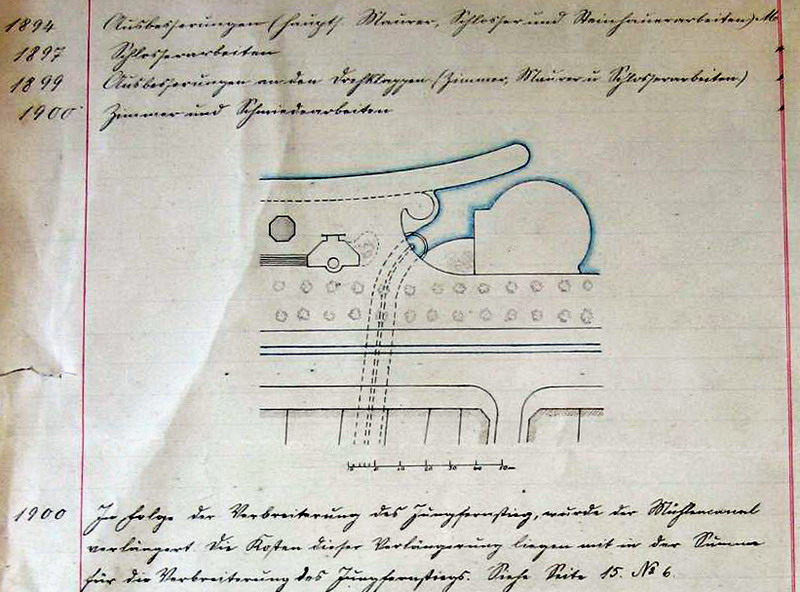 1894 Ausbesserungen (haupts. Maurer, Schlosser und Steinhauerarbeiten)
1897 Schlosserarbeiten "
1899 Ausbesserungen an den Drehklappen (Zimmer, Maurer u Schlosserarbeiten) "
1900 Zimmer und Schmiedearbeiten "
1900 In Folge der Verbreiterung des Jungfernstieg, wurde der Mühlencanal
verlängert. Die Kosten dieser Verlängerung liegen mit in der Summe
für die Verbreiterung des Jungfernstiegs. Siehe Seite 15. No 6.